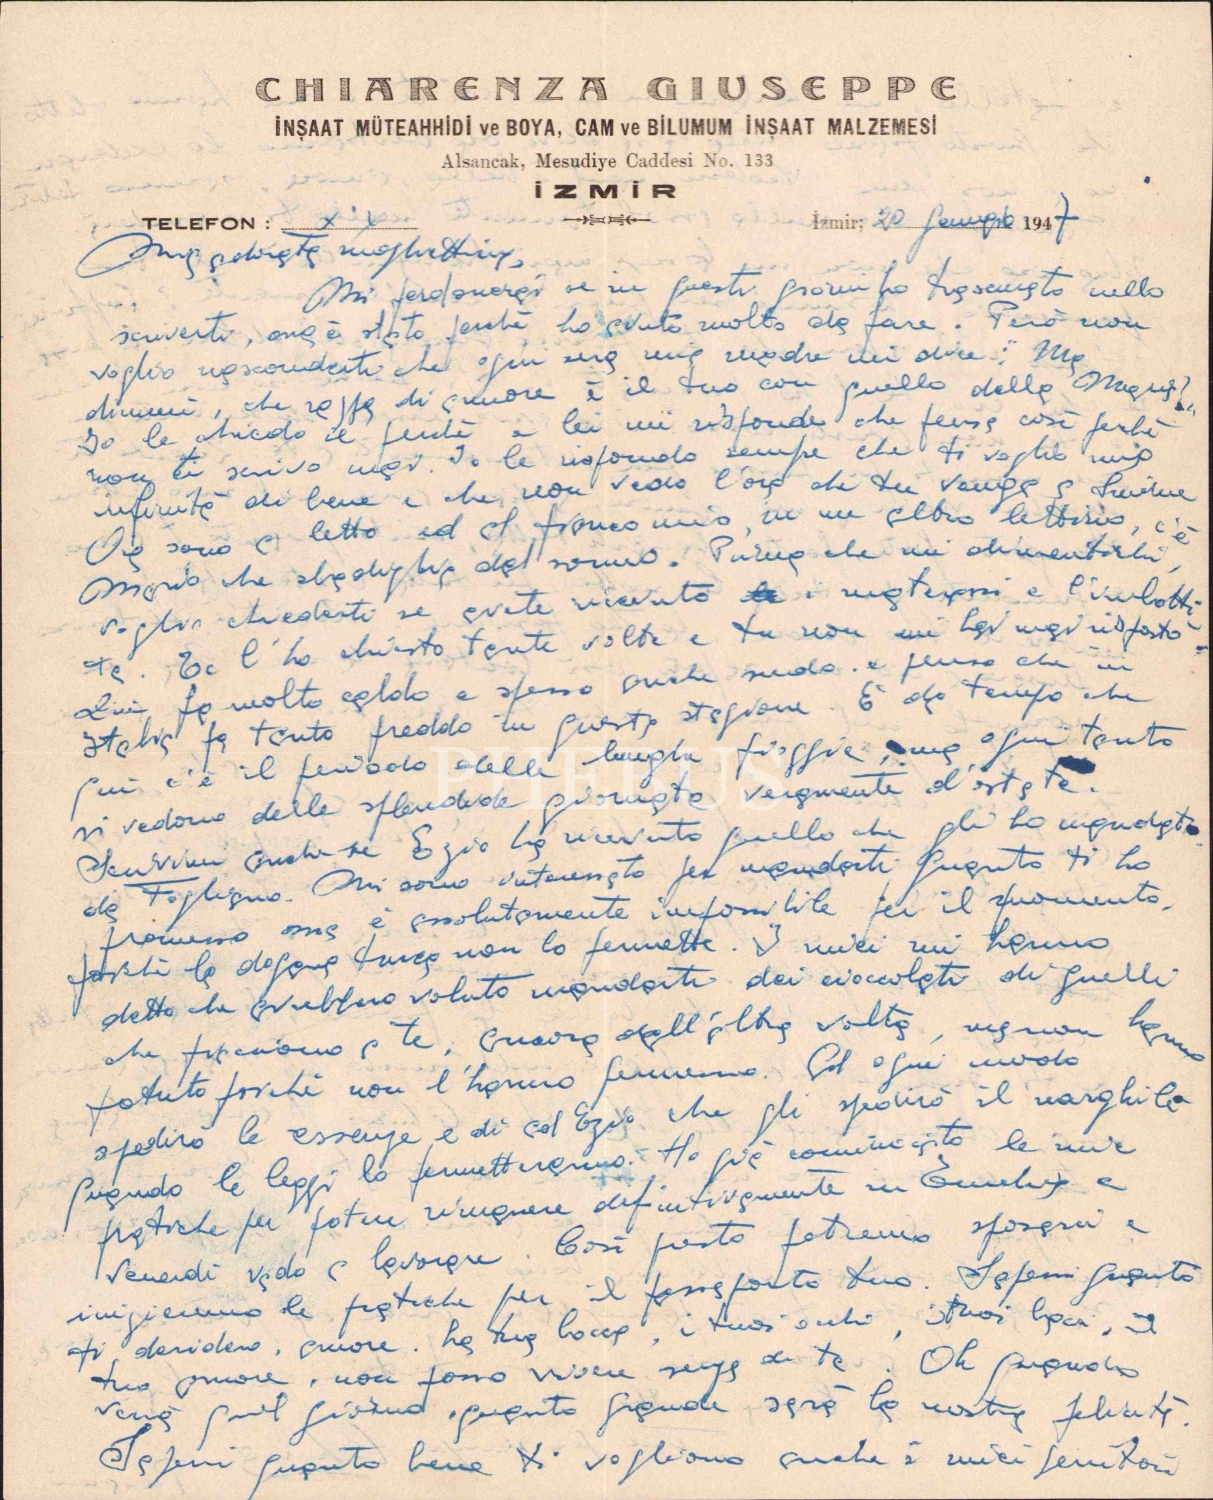 CHIARENZA GIUSEPPE
İNŞAAT MÜTEAHHİDİ ve BOYA, CAM ve BİLUMUM İNŞAAT MALZEMESİ
Alsancak, Mesudiye Caddesi No. 133
İZMİR
TELEFON : x x
İzmir; 20 Gennaio 1947
Mia adorata mogliettina,
Mi perdonerai se in questi giorni ho trascurato nello
scriverti, ma è stato perché ho avuto molto da fare. Però non
voglio nasconderti che ogni sera mia madre mi dice: "Ma
dimmi, che razza di amore è il tuo con quello della Maria?"
Io le chiedo il perché e lei mi risponde che pensa così perché
non ti scrivo mai. Io le rispondo sempre che ti voglio una
infinità di bene e che non vedo l'ora che tu venga a Smirne
Ora sono a letto ed al fianco mio, in un altro lettino, c'è
Mario che sbadiglia dal sonno. Prima che mi dimentichi,
voglio chiederti se avete ricevuto i materassi e l'imbotti-
ta. Te l'ho chiesto tante volte e tu non mi hai mai risposto.
Qui fa molto caldo e spesso anche sudo. e penso che in
Italia fa tanto freddo in questa stagione. È da tempo che
qui c'è il periodo delle lunghe pioggie, ma ogni tanto
si vedono delle splendide giornate veramente d'estate.
Scrivimi anche se Ezio ha ricevuto quello che gli ho mandato
da Togliano. Mi sono interessato per mandarti quanto ti ho
promesso ma è assolutamente impossibile per il momento,
perché la dogana turca non lo permette. I miei mi hanno
detto che avrebbero voluto mandarti dei cioccolati di quelli
che piacciono a te, ancora dall'altra volta, ma non hanno
potuto perché non l'hanno permesso. Ad ogni modo
spedirò le essenze e di ad Ezio che gli spedirò il narghilè
quando le leggi lo permetteranno. Ho già cominciato le mie
pratiche per poter rimanere definitivamente in Turchia e
Venerdì vado a lavorare. Così presto potremo sposarci e
inizieremo le pratiche per il passaporto tuo. Sapessi quanto
ti desidero, amore. La tua bocca, i tuoi occhi, i tuoi baci, il
tuo amore, non posso vivere senza di te. Oh quando
verrà quel giorno, quanto grande sarà la nostra felicità.
Sapessi quanto bene ti vogliono anche i miei genitori